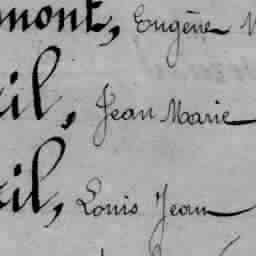 mont, Eugène
il, Jean Marie
il, Louis Jean